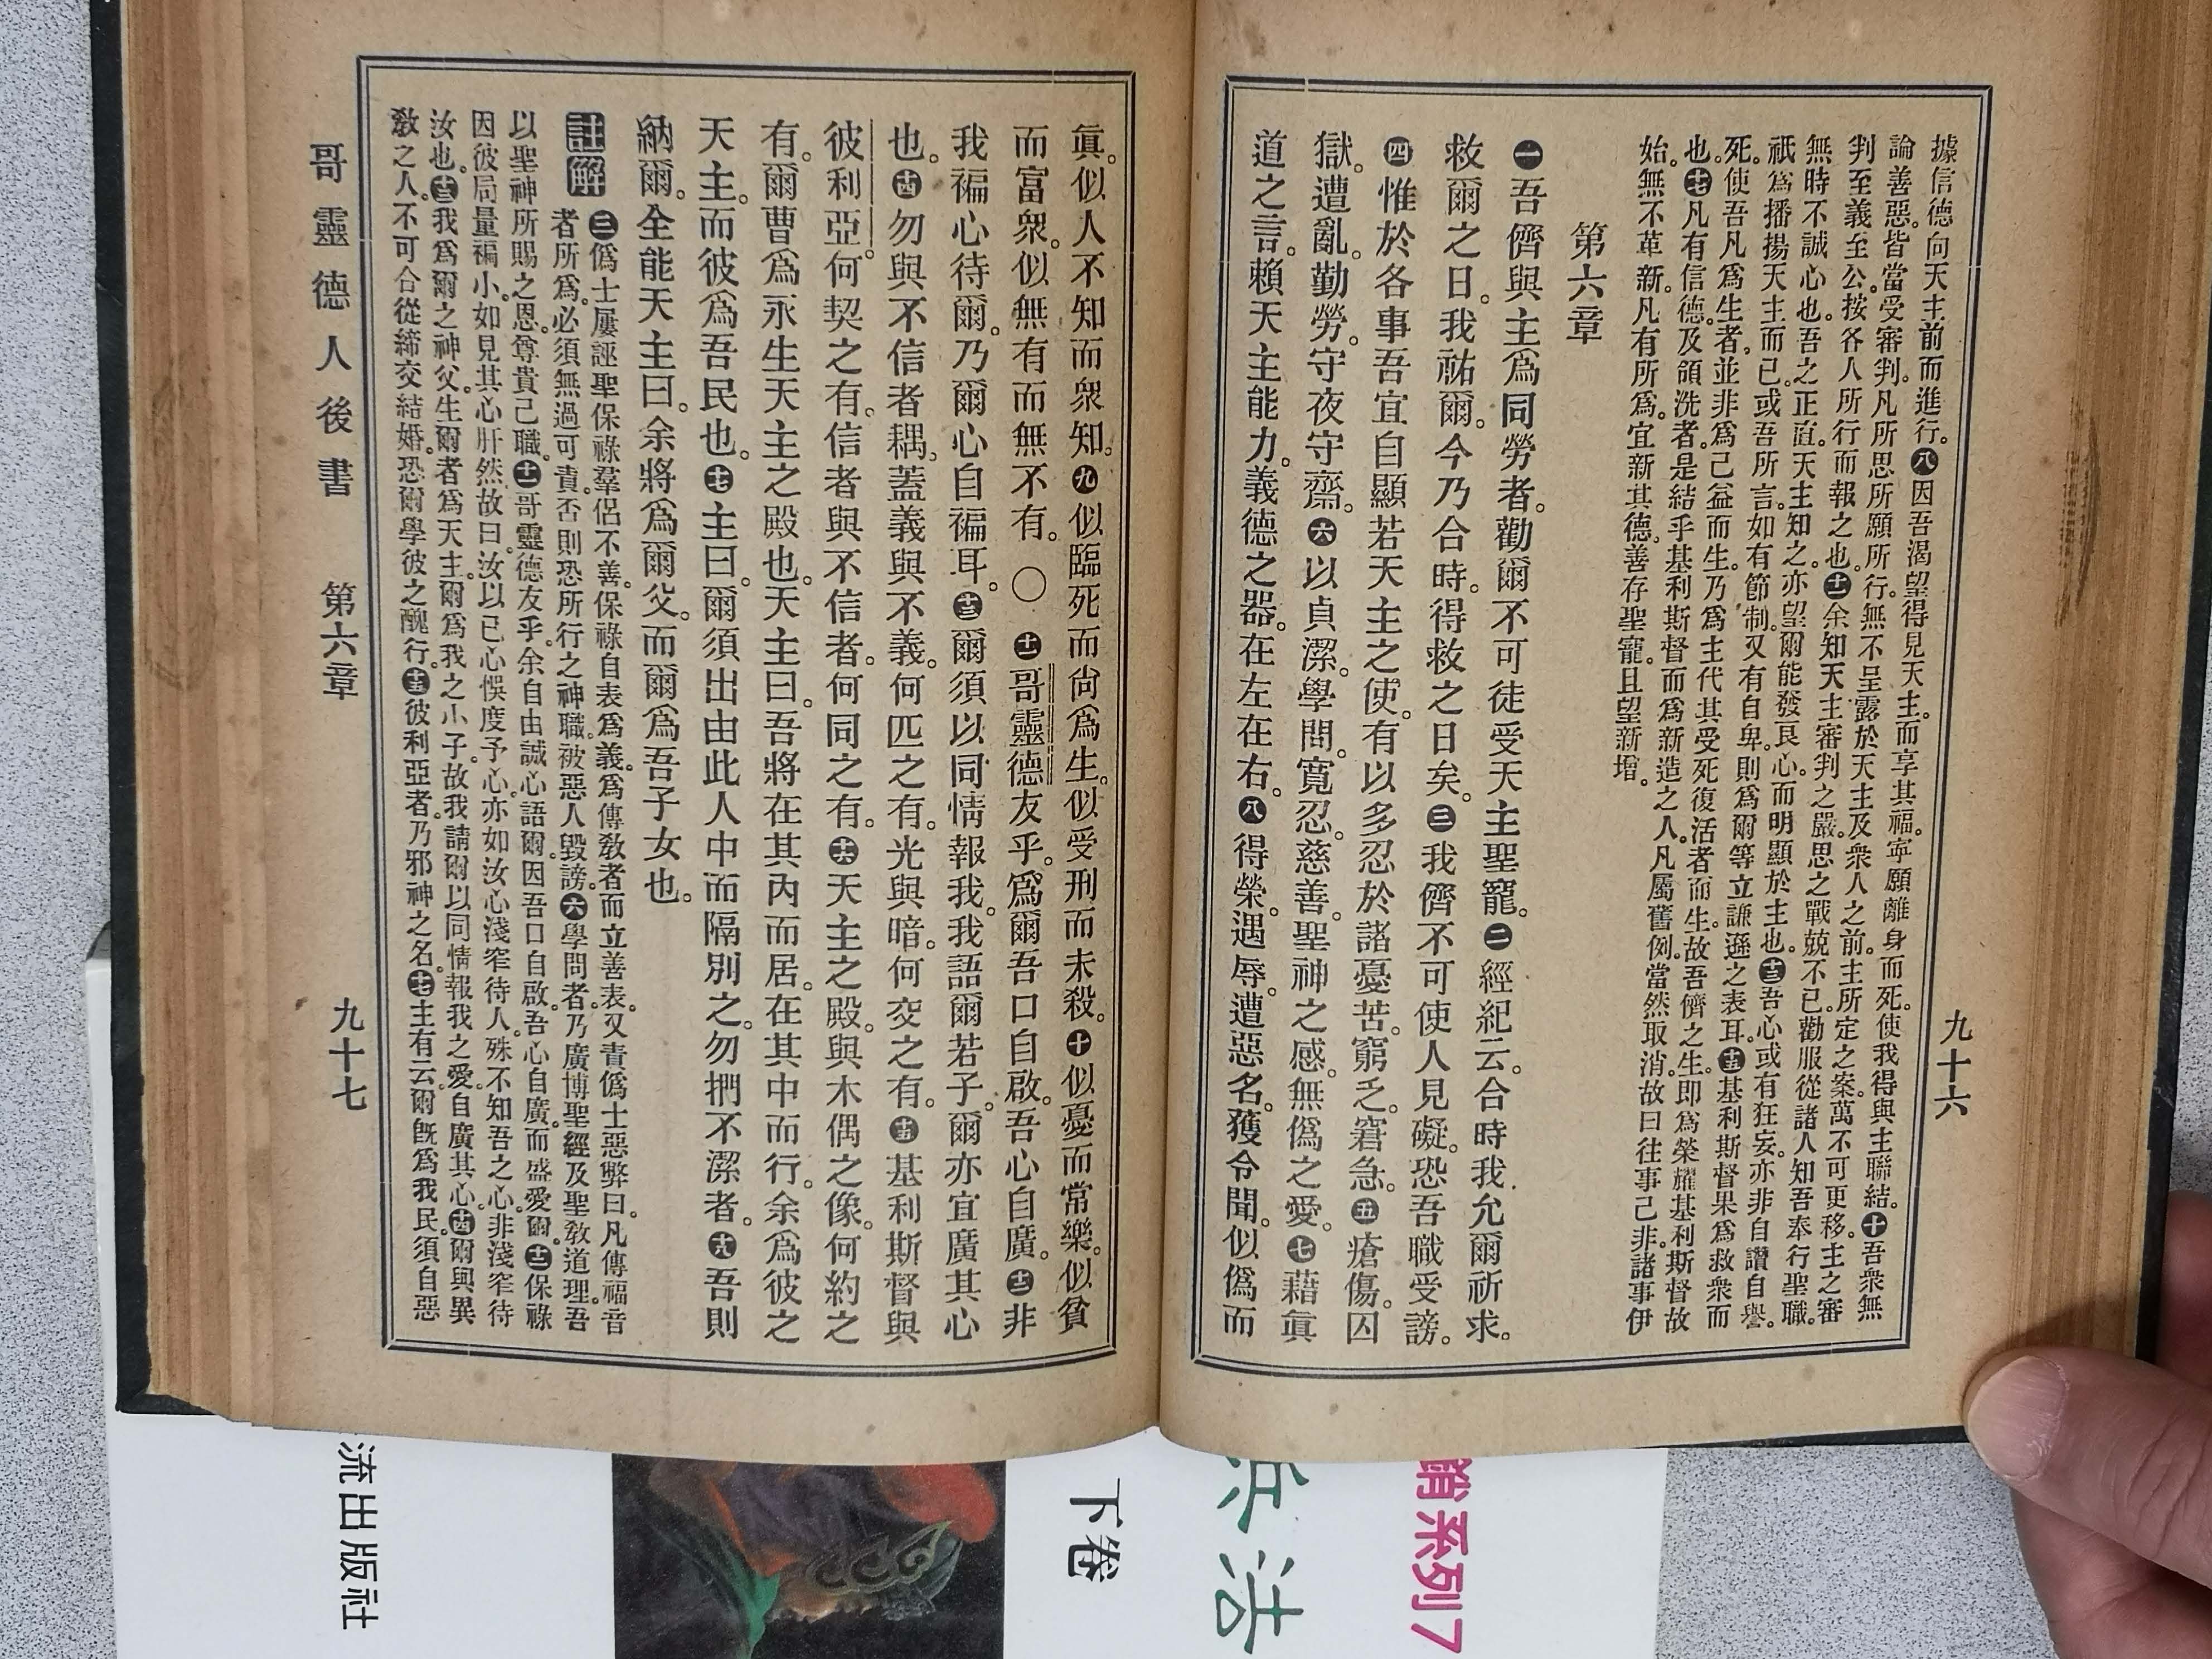 九十六
據信德向天主前而進行。八因吾渴望得見天主。而享其福。寧願離身而死。使我得與主聯結。十吾衆無
論善惡。皆當受審判。凡所思所願所行。無不呈露於天主及衆人之前。主所定之案。萬不可更移。主之審
判至義至公。按各人所行而報之也。十一余知天主審判之嚴。思之戰兢不已。勸服從諸人知吾奉行聖職。
無時不誠心也。吾之正直。天主知之。亦望爾能發良心。而明顯於主也。十三吾心或有狂妄。亦非自讚自譽。
祇爲播揚天主而已。或吾所言。如有節制。又有自卑。則爲爾等立謙遜之表耳。十五基利斯督果爲救衆而
死。使吾凡爲生者。並非爲己益而生。乃爲主代其受死復活者而生。故吾儕之生。卽爲榮耀基利斯督故
也。十七凡有信德。及領洗者。是結乎基利斯督而爲新造之人。凡屬舊例。當然取消。故曰往事已非。諸事伊
始。無不革新。凡有所爲。宜新其德。善存聖寵。且望新增。
第六章
一吾儕與主爲同勞者。勸爾不可徒受天主聖寵。二經紀云。合時我允爾祈求。
救爾之日。我祐爾。今乃合時。得救之日矣。三我儕不可使人見礙。恐吾職受謗。
四惟於各事吾宜自顯若天主之使。有以多忍於諸憂苦。窮乏。窘急。五瘡傷。囚
獄。遭亂。勤勞。守夜守齋。六以貞潔。學問。寬忍。慈善。聖神之感。無僞之愛。七藉眞
道之言。賴天主能力。義德之器。在左在右。八得榮。遇辱。遭惡名。獲令聞。似僞而
眞。似人不知而衆知。九似臨死而尙爲生。似受刑而未殺。十似憂而常樂。似貧
而富衆。似無有而無不有。〇十一哥靈德友乎。爲爾吾口自啟。吾心自廣。十二非
我褊心待爾。乃爾心自褊耳。十三爾須以同情報我。我語爾若子。爾亦宜廣其心
也。十四勿與不信者耦。蓋義與不義。何匹之有。光與暗。何交之有。十五基利斯督與
彼利亞。何契之有。信者與不信者。何同之有。十六天主之殿。與木偶之像。何約之
有。爾曹爲永生天主之殿也。天主曰。吾將在其內而居。在其中而行。余爲彼之
天主。而彼爲吾民也。十七主曰。爾須出由此人中而隔別之。勿捫不潔者。十八吾則
納爾。全能天主曰。余將爲爾父。而爾爲吾子女也。
註解 三僞士屢誣聖保祿羣侶不善。保祿自表爲義。爲傳敎者而立善表。又責僞士惡弊曰。凡傳福音
者所爲。必須無過可責。否則恐所行之神職。被惡人毀謗。六學問者。乃廣博聖經及聖敎道理。吾
以聖神所賜之恩。尊貴己職。十一哥靈德友乎。余自由誠心語爾。因吾口自啟。吾心自廣。而盛愛爾。十二保祿
因彼局量褊小。如見其心肝然。故曰。汝以己心悞度予心。亦如汝心淺窄待人。殊不知吾之心。非淺窄待
汝也。十三我爲爾之神父。生爾者爲天主。爾爲我之小子。故我請爾以同情報我之愛。自廣其心。十四爾與異
敎之人。不可合從締交結婚。恐爾學彼之醜行。十五彼利亞者。乃邪神之名。十七主有云。爾旣爲我民。須自惡
哥靈德人後書　第六章　九十七
流出版社
下卷
兵法
系列7